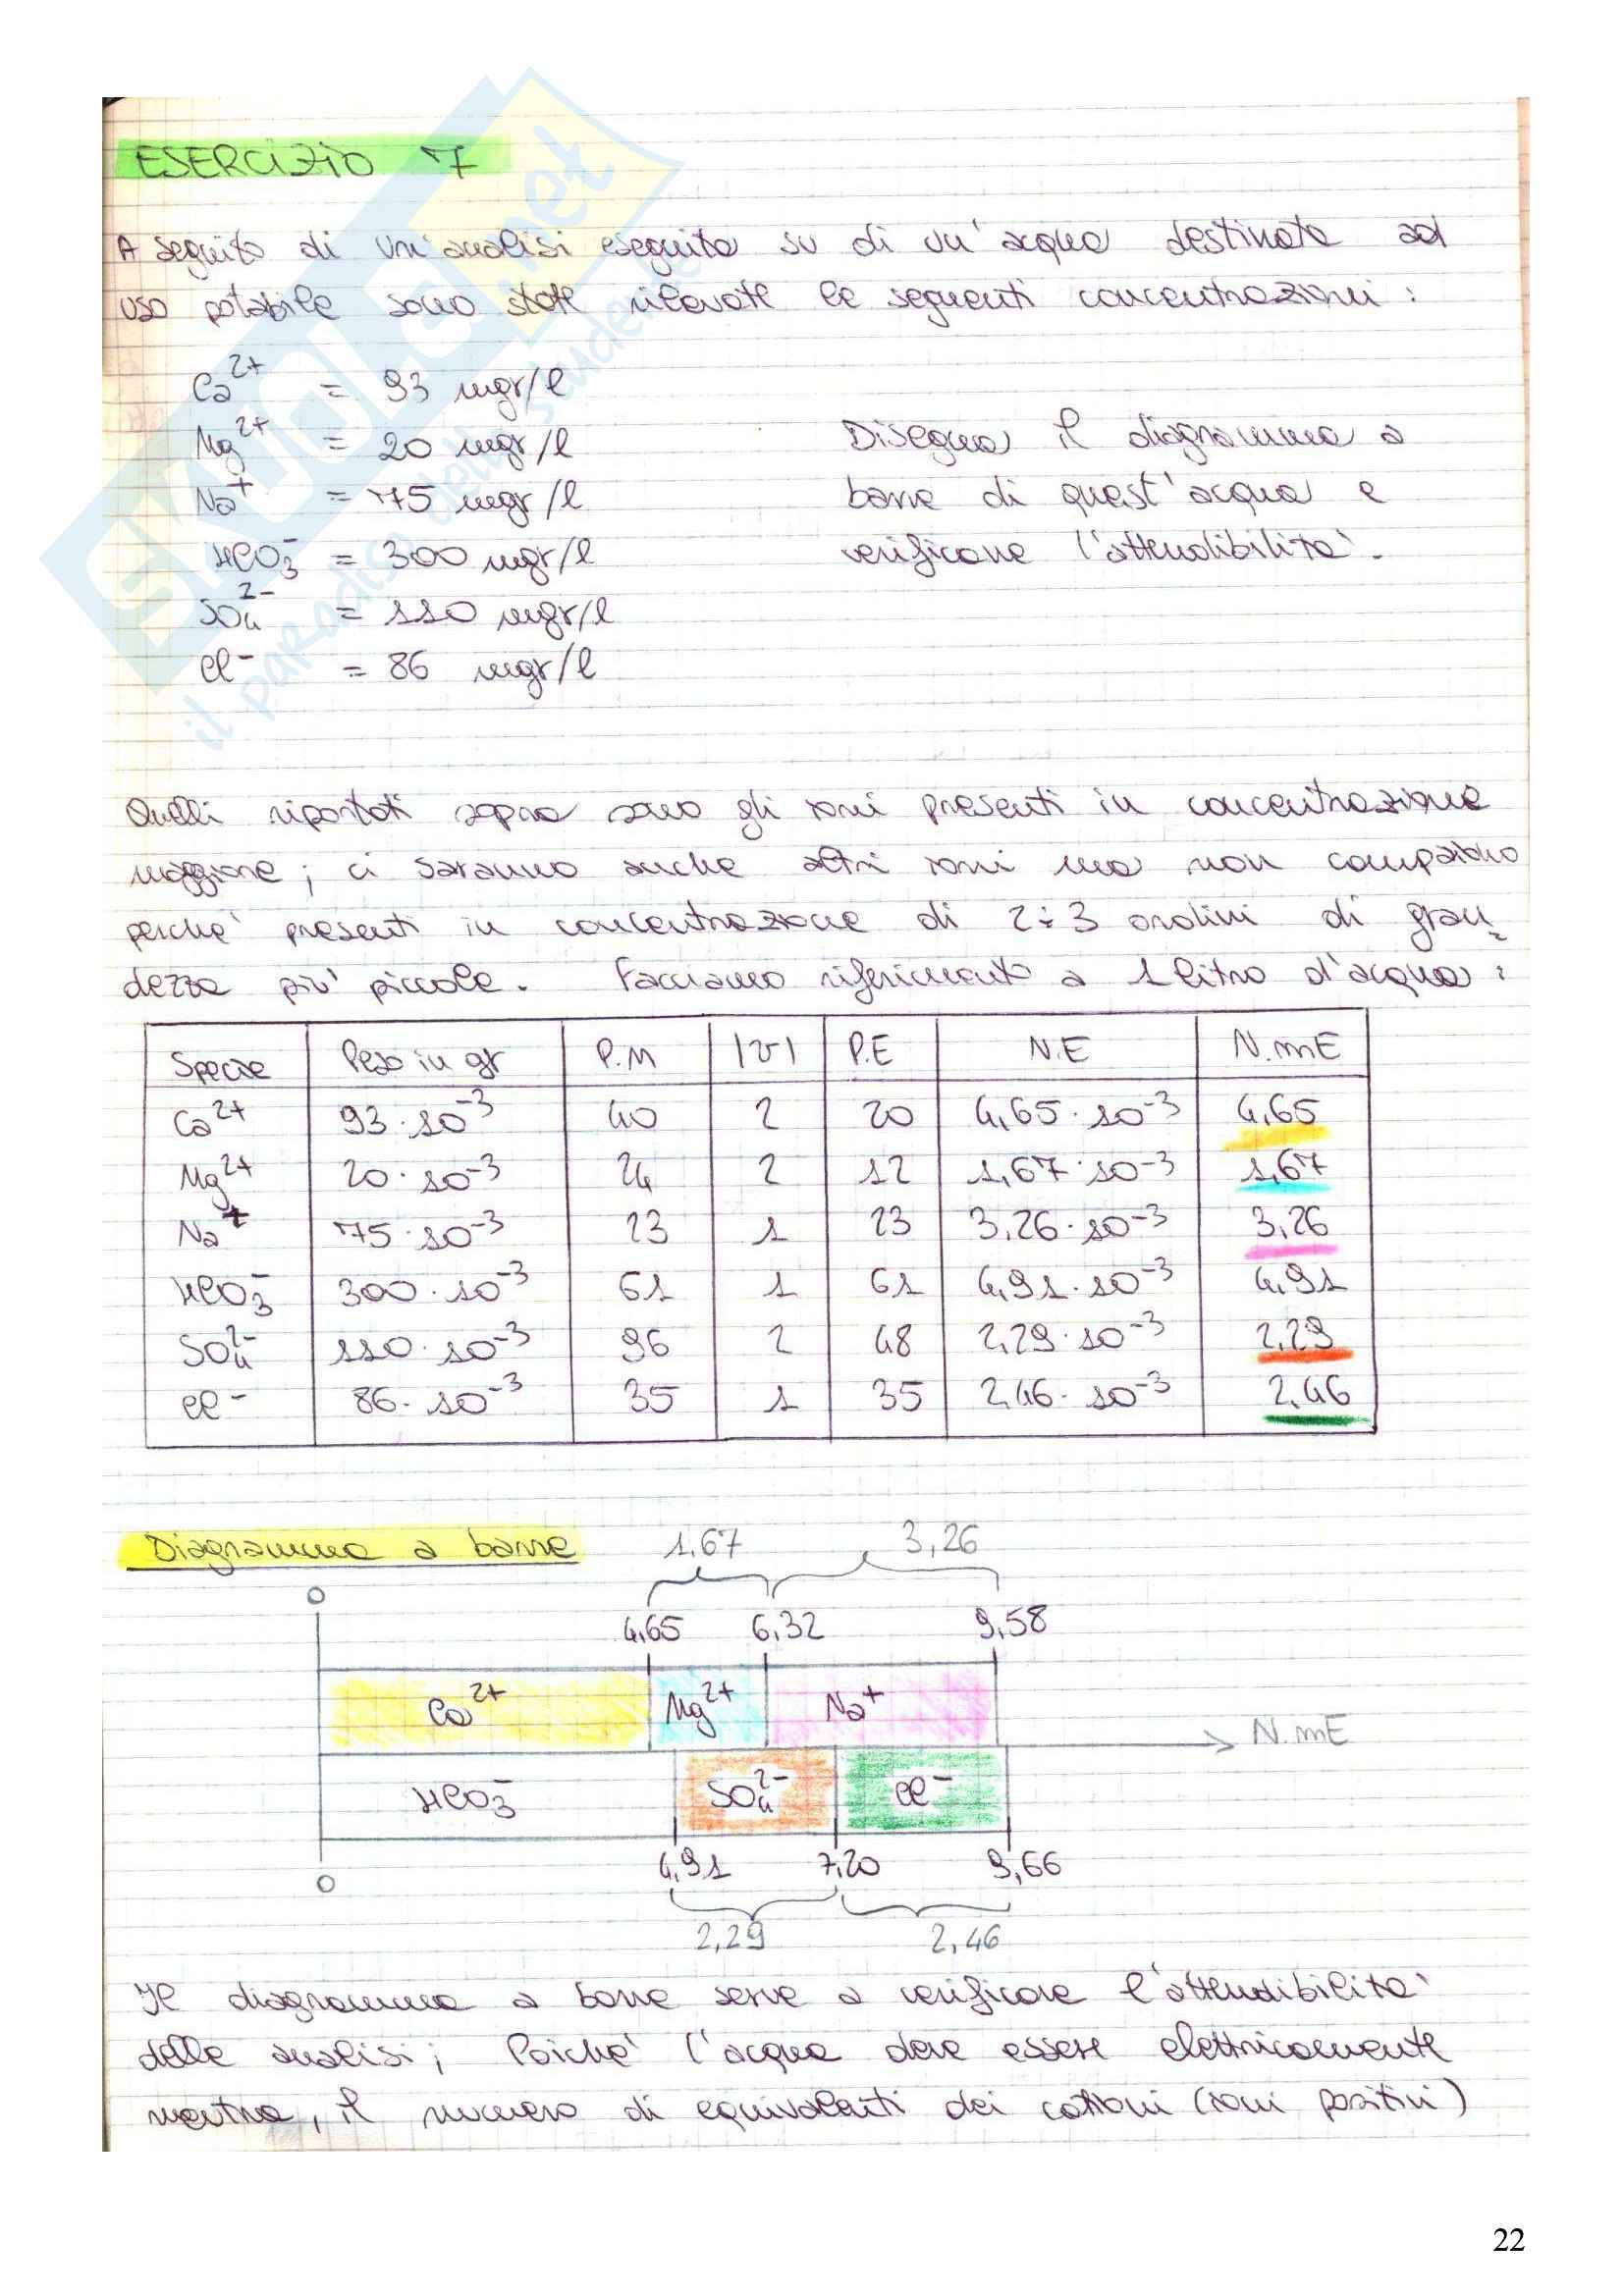 ESERCIZIO 7
A seguito di un'analisi eseguita su di un'acqua destinata ad
uso potabile sono state rilevate le seguenti concentrazioni:
Ca²⁺ = 93 mgr/l
Mg²⁺ = 20 mgr/l
Na⁺ = 75 mgr/l
HCO₃⁻ = 300 mgr/l
SO₄²⁻ = 110 mgr/l
Cl⁻ = 86 mgr/l
Disegna il diagramma a
barre di quest'acqua e
verificane l'attendibilità.
Quelli riportati sopra sono gli ioni presenti in concentrazione
maggiore; ci saranno anche altri ioni ma non compaiono
perchè presenti in concentrazione di 2÷3 ordini di gran
dezza più piccole. Facciamo riferimento a 1 litro d'acqua:
Specie Peso in gr P.M |v| P.E N.E N.mE
Ca²⁺ 93·10⁻³ 40 2 20 4,65·10⁻³ 4,65
Mg²⁺ 20·10⁻³ 24 2 12 1,67·10⁻³ 1,67
Na⁺ 75·10⁻³ 23 1 23 3,26·10⁻³ 3,26
HCO₃⁻ 300·10⁻³ 61 1 61 4,91·10⁻³ 4,91
SO₄²⁻ 110·10⁻³ 96 2 48 2,29·10⁻³ 2,29
Cl⁻ 86·10⁻³ 35 1 35 2,46·10⁻³ 2,46
Diagramma a barre 1,67 3,26
0 4,65 6,32 9,58
Ca²⁺ Mg²⁺ Na⁺
N.mE
HCO₃⁻ SO₄²⁻ Cl⁻
0 4,91 7,20 9,66
2,29 2,46
Il diagramma a barre serve a verificare l'attendibilità
delle analisi; Poichè l'acqua deve essere elettricamente
neutra, il numero di equivalenti dei cationi (ioni positivi)
22
SKUOLA.net
il paradiso dello studente